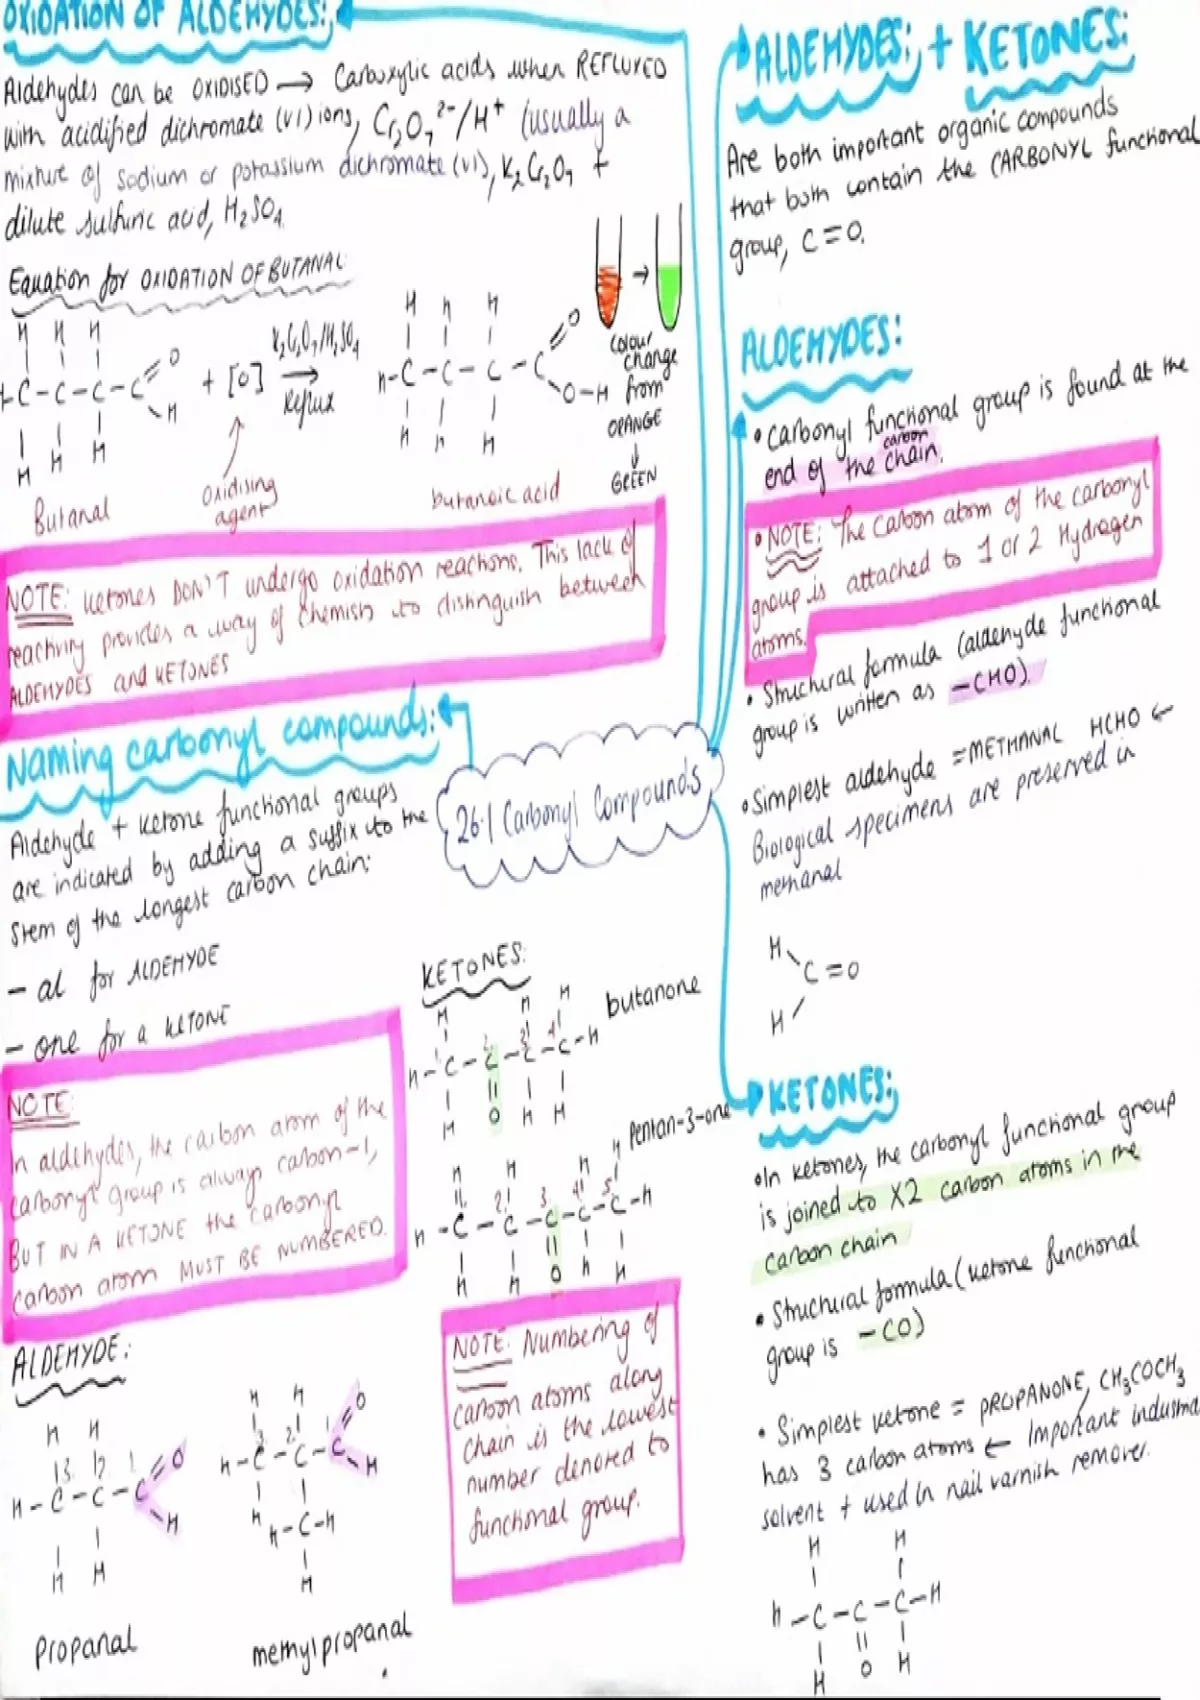 OXIDATION OF ALDEHYDES:
Aldehydes can be OXIDISED → Carboxylic acids when REFLUXED
with acidified dichromate (VI) ions, Cr₂O₇²⁻/H⁺ (usually a
mixture of sodium or potassium dichromate (VI), K₂Cr₂O₇ +
dilute sulfuric acid, H₂SO₄.
Equation for OXIDATION OF BUTANAL:
+ [O]
K₂Cr₂O₇/H₂SO₄
→
Reflux
Butanal
Oxidising
agent
butanoic acid
Colour
change
from
ORANGE
↓
GREEN
NOTE: ketones DON'T undergo oxidation reactions. This lack of
reactivity provides a way of chemists to distinguish between
ALDEHYDES and KETONES
Naming carbonyl compounds:
Aldehyde + ketone functional groups
are indicated by adding a suffix to the
stem of the longest carbon chain:
- al for ALDEHYDE
- one for a KETONE
NOTE:
In aldehydes, the carbon atom of the
carbonyl group is always carbon-1,
BUT IN A KETONE the carbonyl
carbon atom MUST BE NUMBERED.
ALDEHYDE:
propanal
methylpropanal
KETONES:
butanone
pentan-3-one
NOTE: Numbering of
carbon atoms along
chain is the lowest
number denoted to
functional group.
26.1 Carbonyl Compounds
ALDEHYDES: + KETONES:
Are both important organic compounds
that both contain the CARBONYL functional
group, C=O.
ALDEHYDES:
• Carbonyl functional group is found at the
end of the carbon chain.
• NOTE: The carbon atom of the carbonyl
group is attached to 1 or 2 Hydrogen
atoms.
• Structural formula (aldehyde functional
group is written as -CHO)
• Simplest aldehyde = METHANAL HCHO ←
Biological specimens are preserved in
methanal
H
C=O
H
KETONES:
• In ketones, the carbonyl functional group
is joined to X2 carbon atoms in the
carbon chain
• Structural formula (ketone functional
group is -CO)
• Simplest ketone = PROPANONE, CH₃COCH₃
has 3 carbon atoms ← Important industrial
solvent + used in nail varnish remover.
H H
H-C-C-C-H
H O H